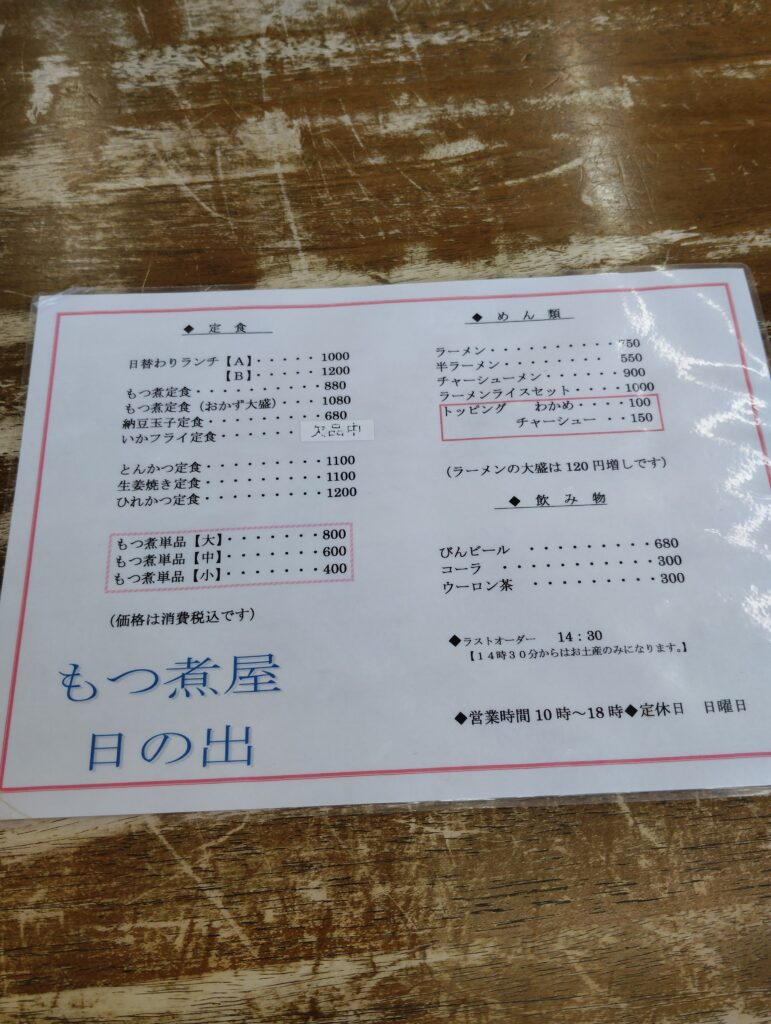 ◆ 定 食
日替わりランチ【A】・・・・・1000
【B】・・・・・1200
もつ煮定食・・・・・・・・・880
もつ煮定食（おかず大盛）・・・1080
納豆玉子定食・・・・・・・・680
いかフライ定食・・・・・・欠品中
とんかつ定食・・・・・・・・1100
生姜焼き定食・・・・・・・・1100
ひれかつ定食・・・・・・・・1200
もつ煮単品【大】・・・・・・・800
もつ煮単品【中】・・・・・・・600
もつ煮単品【小】・・・・・・・400
（価格は消費税込です）
もつ煮屋
日の出
◆ め ん 類
ラーメン・・・・・・・・・・750
半ラーメン・・・・・・・・・550
チャーシューメン・・・・・・900
ラーメンライスセット・・・・1000
トッピング わかめ・・・・100
チャーシュー・・150
（ラーメンの大盛は120円増しです）
◆ 飲 み 物
びんビール ・・・・・・・・680
コーラ ・・・・・・・・・・300
ウーロン茶 ・・・・・・・・300
◆ラストオーダー 14：30
【１４時３０分からはお土産のみになります。】
◆営業時間 10時～18時◆定休日 日曜日